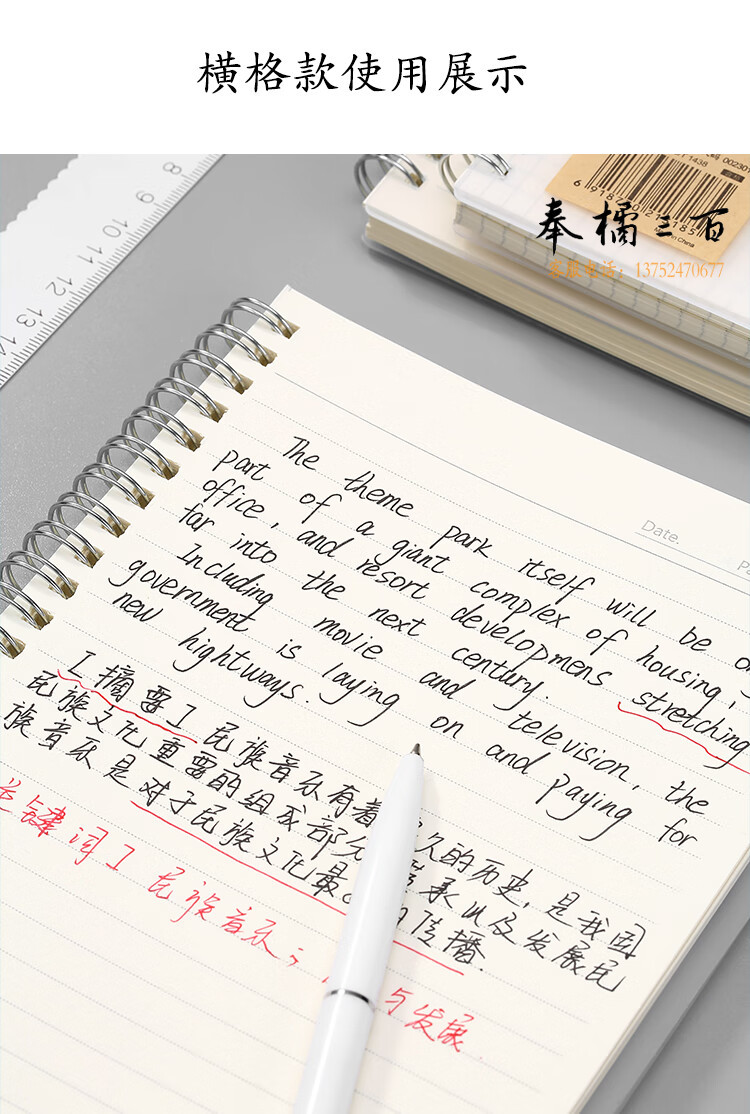 横格款使用展示
8 9 10 11 12 13 14
1438
002301
6 918
Made in China
奉橘三百
客服电话：13752470677
Date.
Pa
The theme park itself will be
part of a giant complex of housing,
office, and resort developmens stretching
far into the next century.
Including movie and television, the
government is laying on and paying for
new hightways.
[摘要] 民族音乐有着 久的历史, 是我国
民族文化重要的组成部分 承以及发展民
族音乐是对于民族文化最 的传播.
关键词] 民族音乐; 与发展.